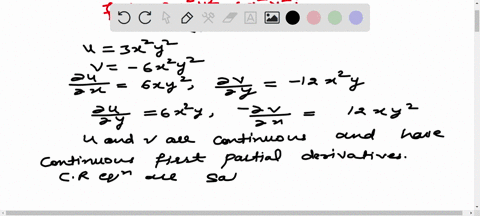 u = 3x²y²
v = -6x²y²
∂u/∂x = 6xy², ∂v/∂y = -12x²y
∂u/∂y = 6x²y, -∂v/∂x = 12xy²
u and v are continuous and have
continuous first partial derivatives.
C.R eqⁿ are sa